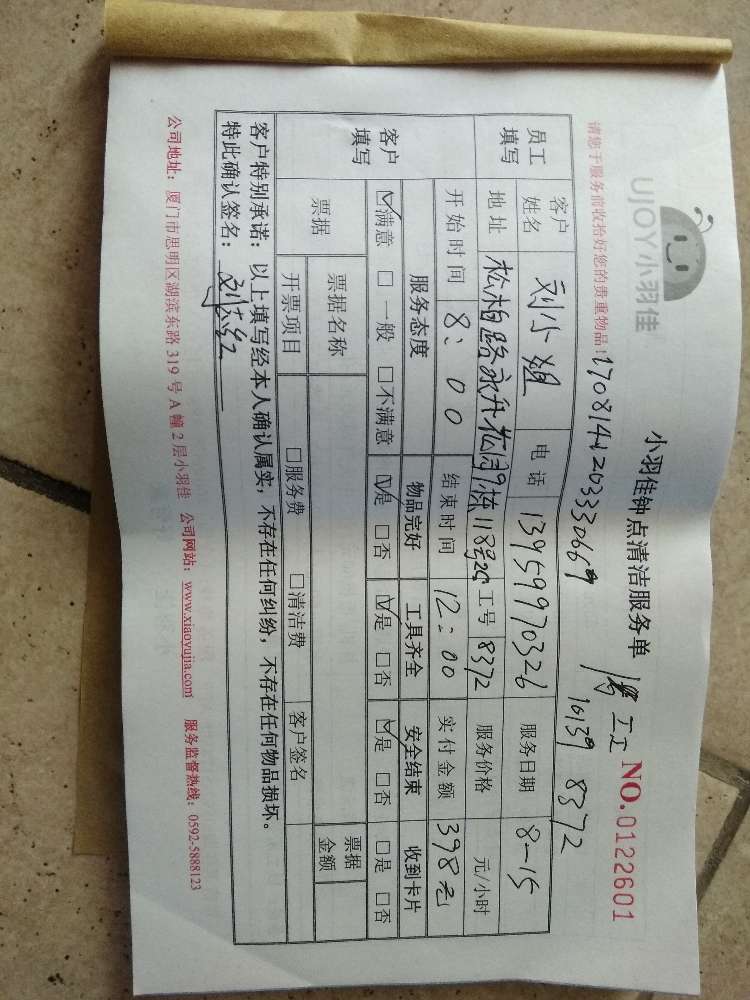 UJOY小羽佳
小羽佳钟点清洁服务单
NO.0122601
请您于服务前收拾好您的贵重物品！
10139 8372
员工填写
客户姓名 刘小姐 电话 13959970326 服务日期 8-15
地址 松柏路永升花园9栋118号 工号 8372 服务价格 元/小时
开始时间 8:00 结束时间 12:00 实付金额 398元
客户填写
服务态度 物品完好 工具齐全 安全结束 收到卡片
☑满意 □一般 □不满意 ☑是 □否 ☑是 □否 ☑是 □否 □是 □否
票据 票据名称 客户签名 票据金额
开票项目 □服务费 □清洁费
客户特别承诺：以上填写经本人确认属实，不存在任何纠纷，不存在任何物品损坏。
特此确认签名：
公司地址：厦门市思明区湖滨东路 319 号 A 幢 2 层小羽佳 公司网站：www.xiaoyujia.com 服务监督热线：0592-5888123